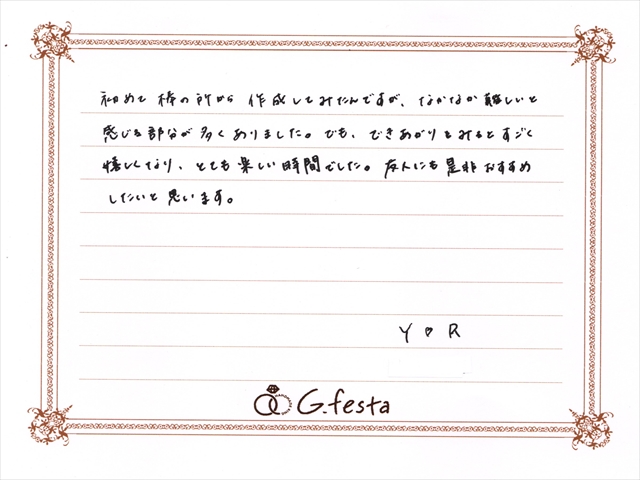 初めて棒の所から作成してみたんですが、なかなか難しいと
感じる部分が多くありました。でも、できあがりをみるとすごく
嬉しくなり、とても楽しい時間でした。友人にも是非おすすめ
したいと思います。
Y♡R
G.festa